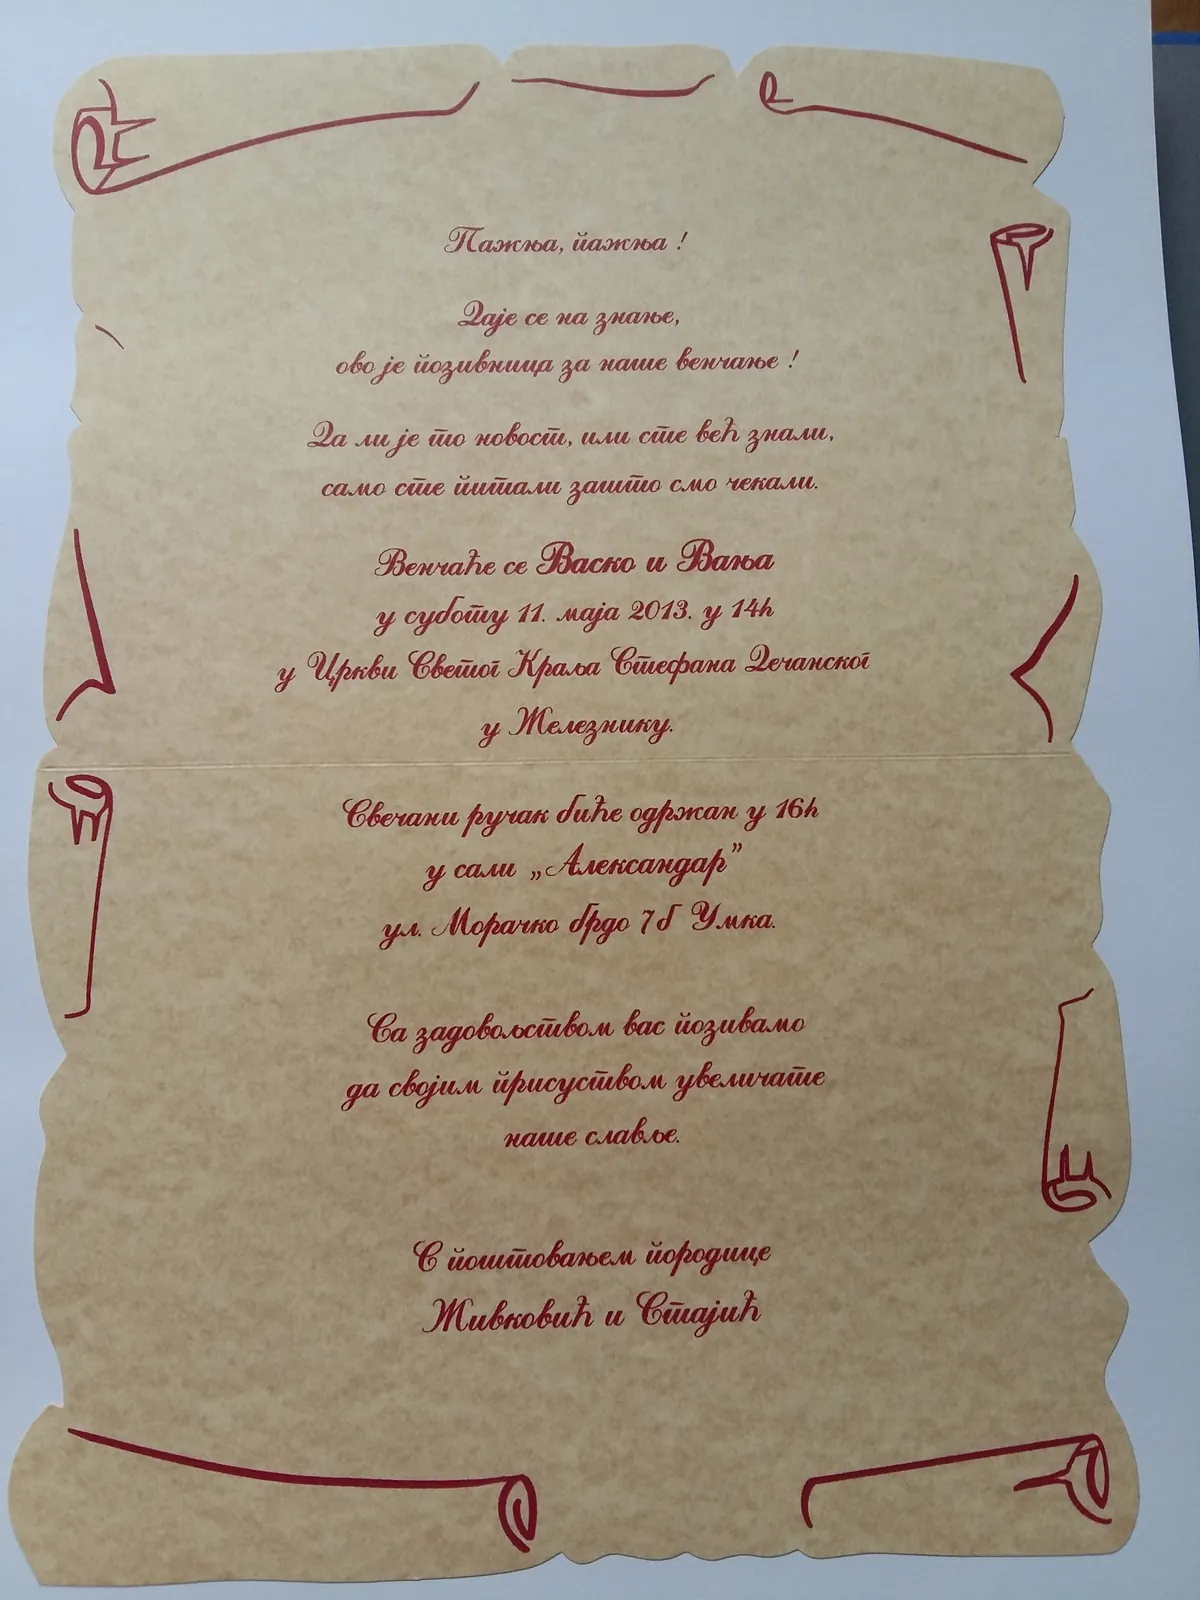 Пажња, пажња !
Даје се на знање,
ово је позивница за наше венчање !
Да ли је то новост, или сте већ знали,
само сте питали зашто смо чекали.
Венчаће се Васко и Вања
у суботу 11. маја 2013. у 14h
у Цркви Светог Краља Стефана Дечанског
у Железнику.
Свечани ручак биће одржан у 16h
у сали „Александар”
ул. Морачко брдо 7б Умка.
Са задовољством вас позивамо
да својим присуством увеличате
наше славље.
С поштовањем породице
Живковић и Стајић